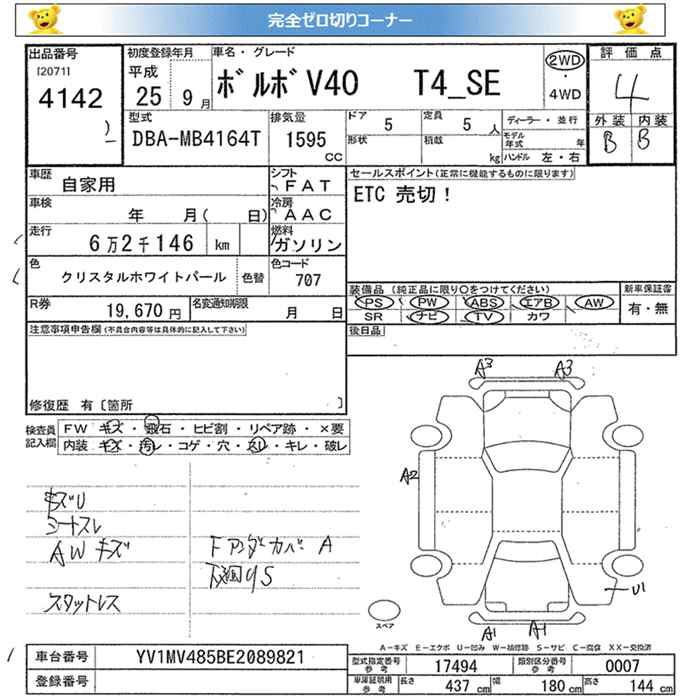 完全ゼロ切りコーナー
出品番号 初度登録年月 車名・グレード 評価点
[2071] 平成 ボルボ V40 T4_SE 2WD・4WD 4
4142 25 9月
型式 排気量 ドア 5 定員 5 人 ディーラー・並行 外装 内装
DBA-MB4164T 1595 CC 形状 積載 kg モデル年式 年 B B
ハンドル 左・右
車歴 自家用 シフト FAT セールスポイント(正常に機能するものに限ります)
車検 年 月( 日) 冷房 AAC ETC 売切!
走行 6万2千146 km 燃料 ガソリン
色 クリスタルホワイトパール 色替 色コード 707
R券 19,670 円 名変通知期限 月 日
装備品 (純正品に限り○をつけてください) 新車保証書
PS PW ABS エアB AW 有・無
SR ナビ TV カワ
注意事項申告欄(不具合内容等は具体的に記入して下さい) 後日品
修復歴 有〔箇所 〕
検査員記入欄 FW キズ・飛石・ヒビ割・リペア跡・×要
内装 キズ・汚レ・コゲ・穴・スレ・キレ・破レ
A3 A3
A2
キズU
シートスレ
AWキズ
ドアンダーカバーA
下廻りS
スタットレス
U1
スペア
A1 A1
A-キズ E-エクボ U-凹み W-補修跡 S-サビ C-腐食 XX-交換済
車台番号 YV1MV485BE2089821 型式指定番号 参考 17494 類別区分番号 参考 0007
登録番号 車庫証明用 参考 長さ 437 cm 幅 180 cm 高さ 144 cm